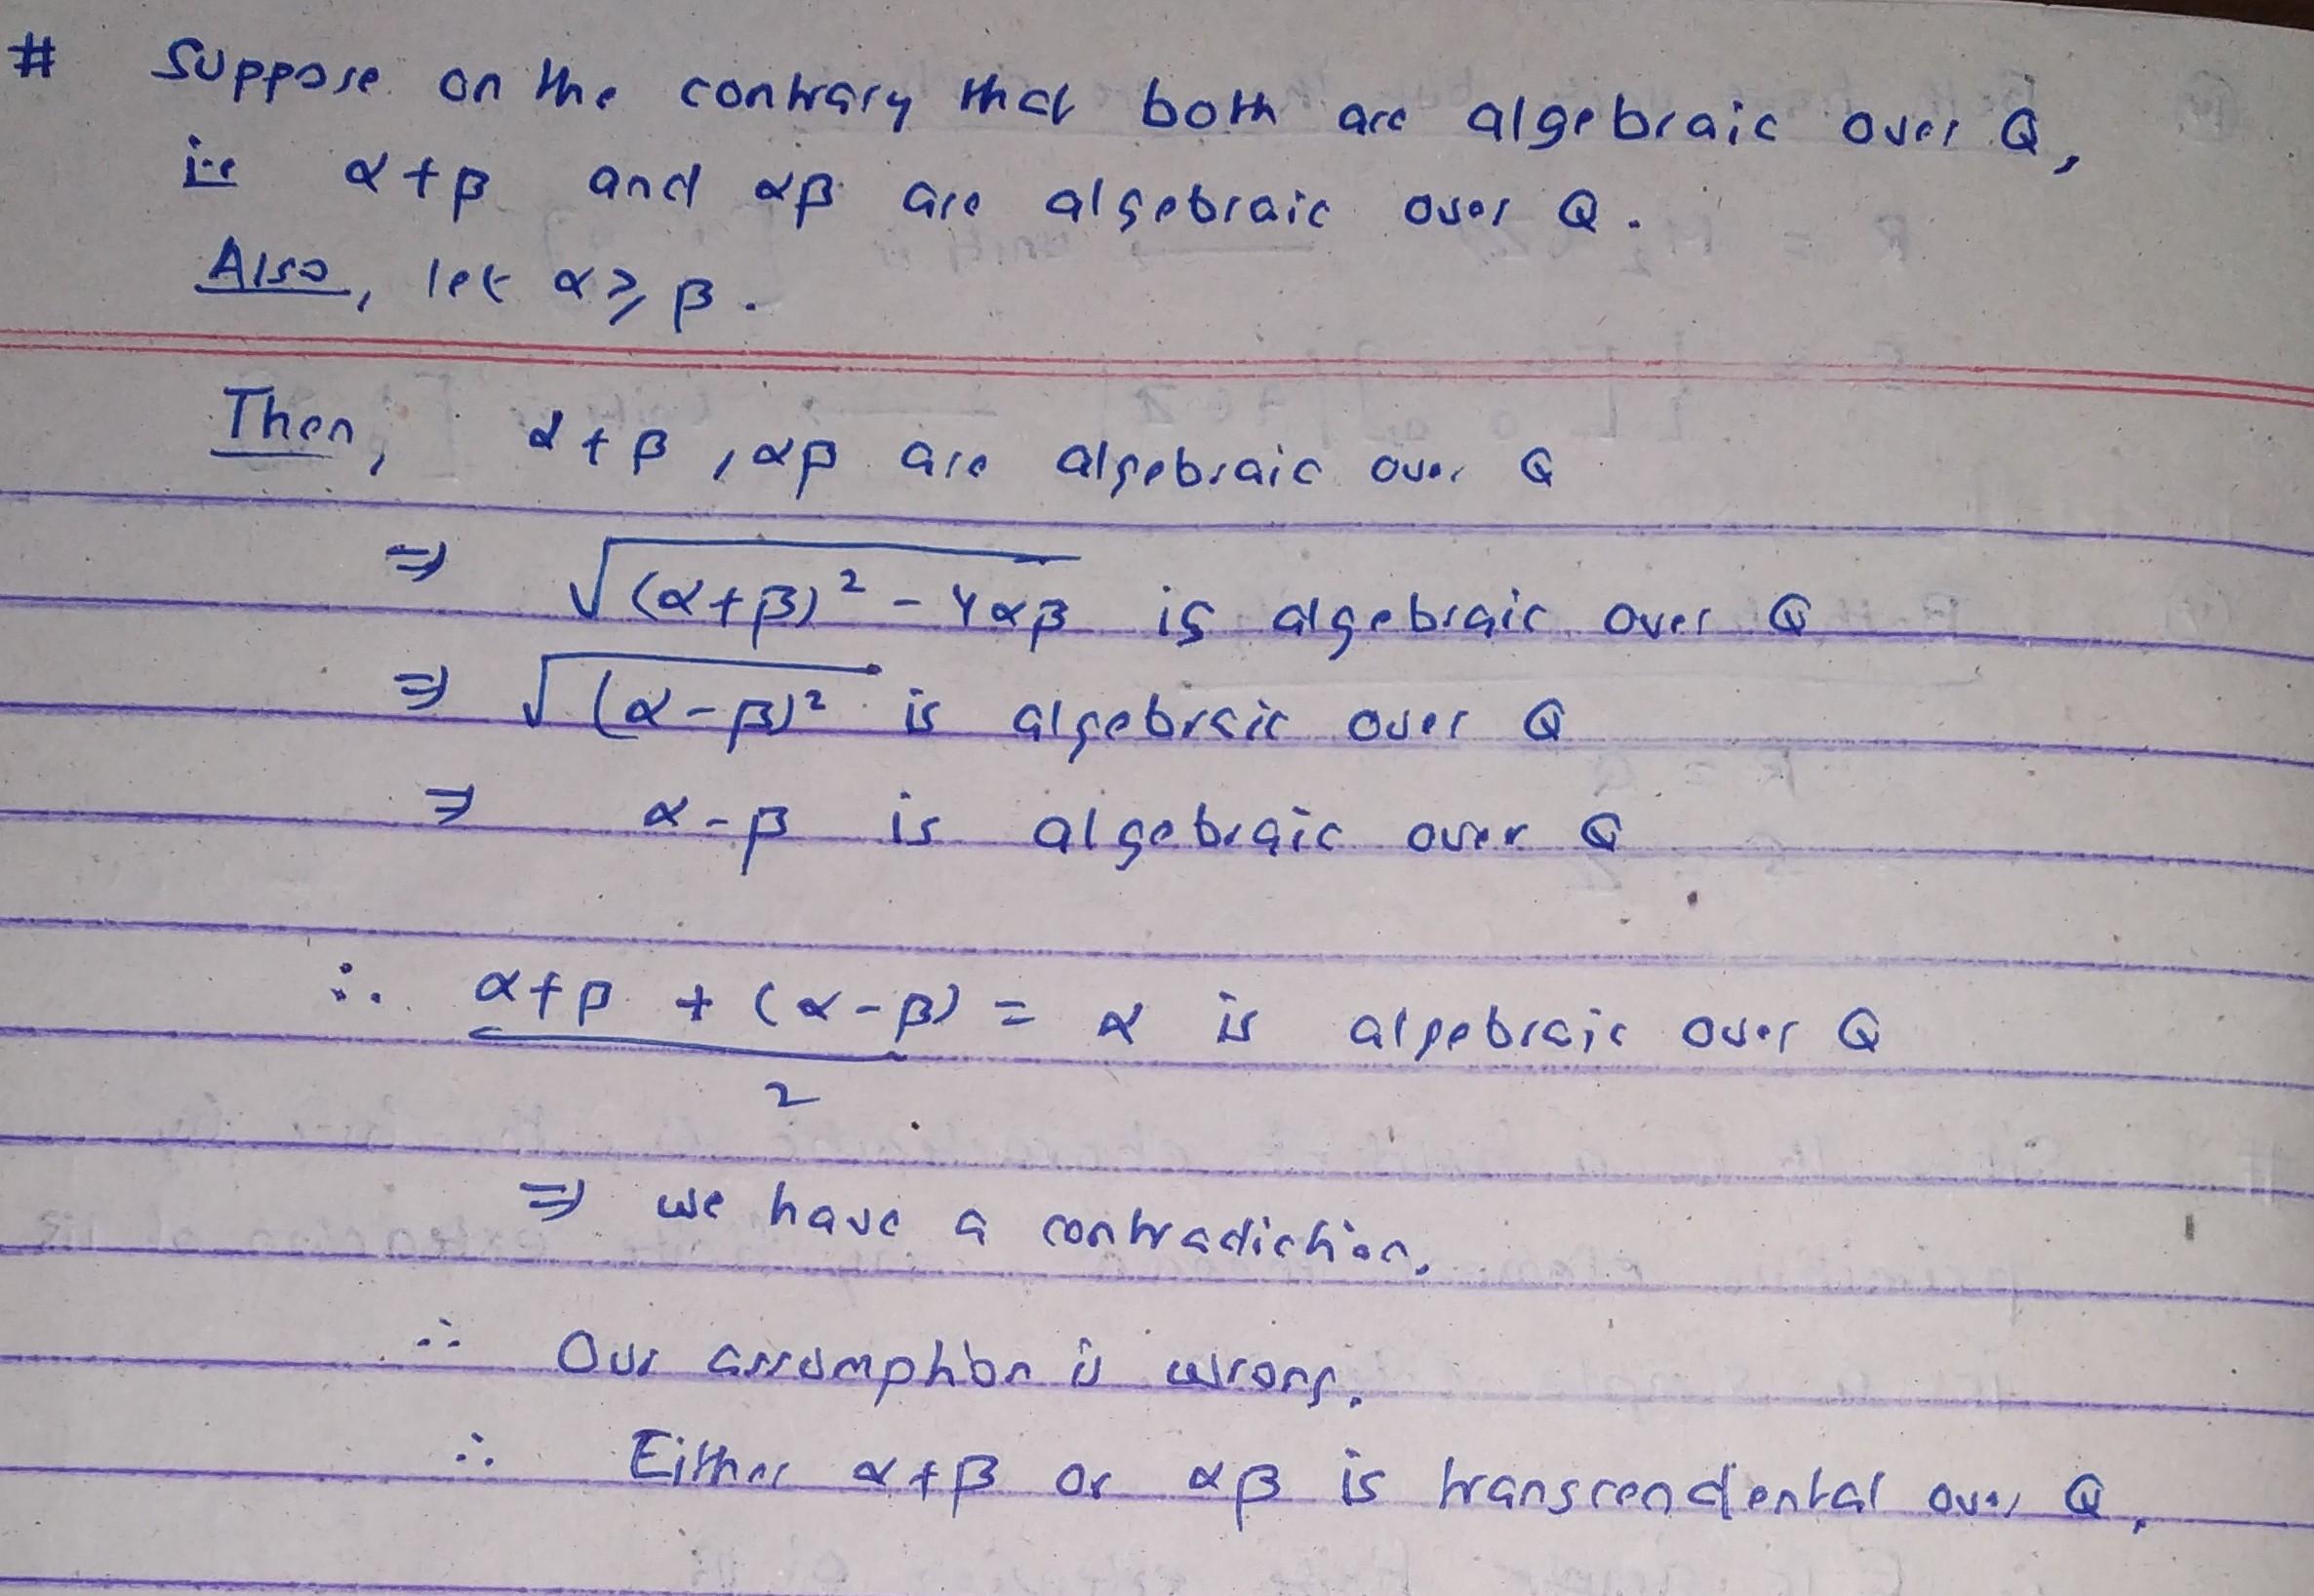 # Suppose on the contrary that both are algebraic over Q,
i.e α+β and αβ are algebraic over Q.
Also, let α ≥ β.
Then, α+β, αβ are algebraic over Q
⇒ √((α+β)² - 4αβ) is algebraic over Q
⇒ √((α-β)²) is algebraic over Q
⇒ α-β is algebraic over Q
∴ α+β + (α-β) = α is algebraic over Q
2
⇒ we have a contradiction.
∴ Our assumption is wrong.
∴ Either α+β or αβ is transcendental over Q.